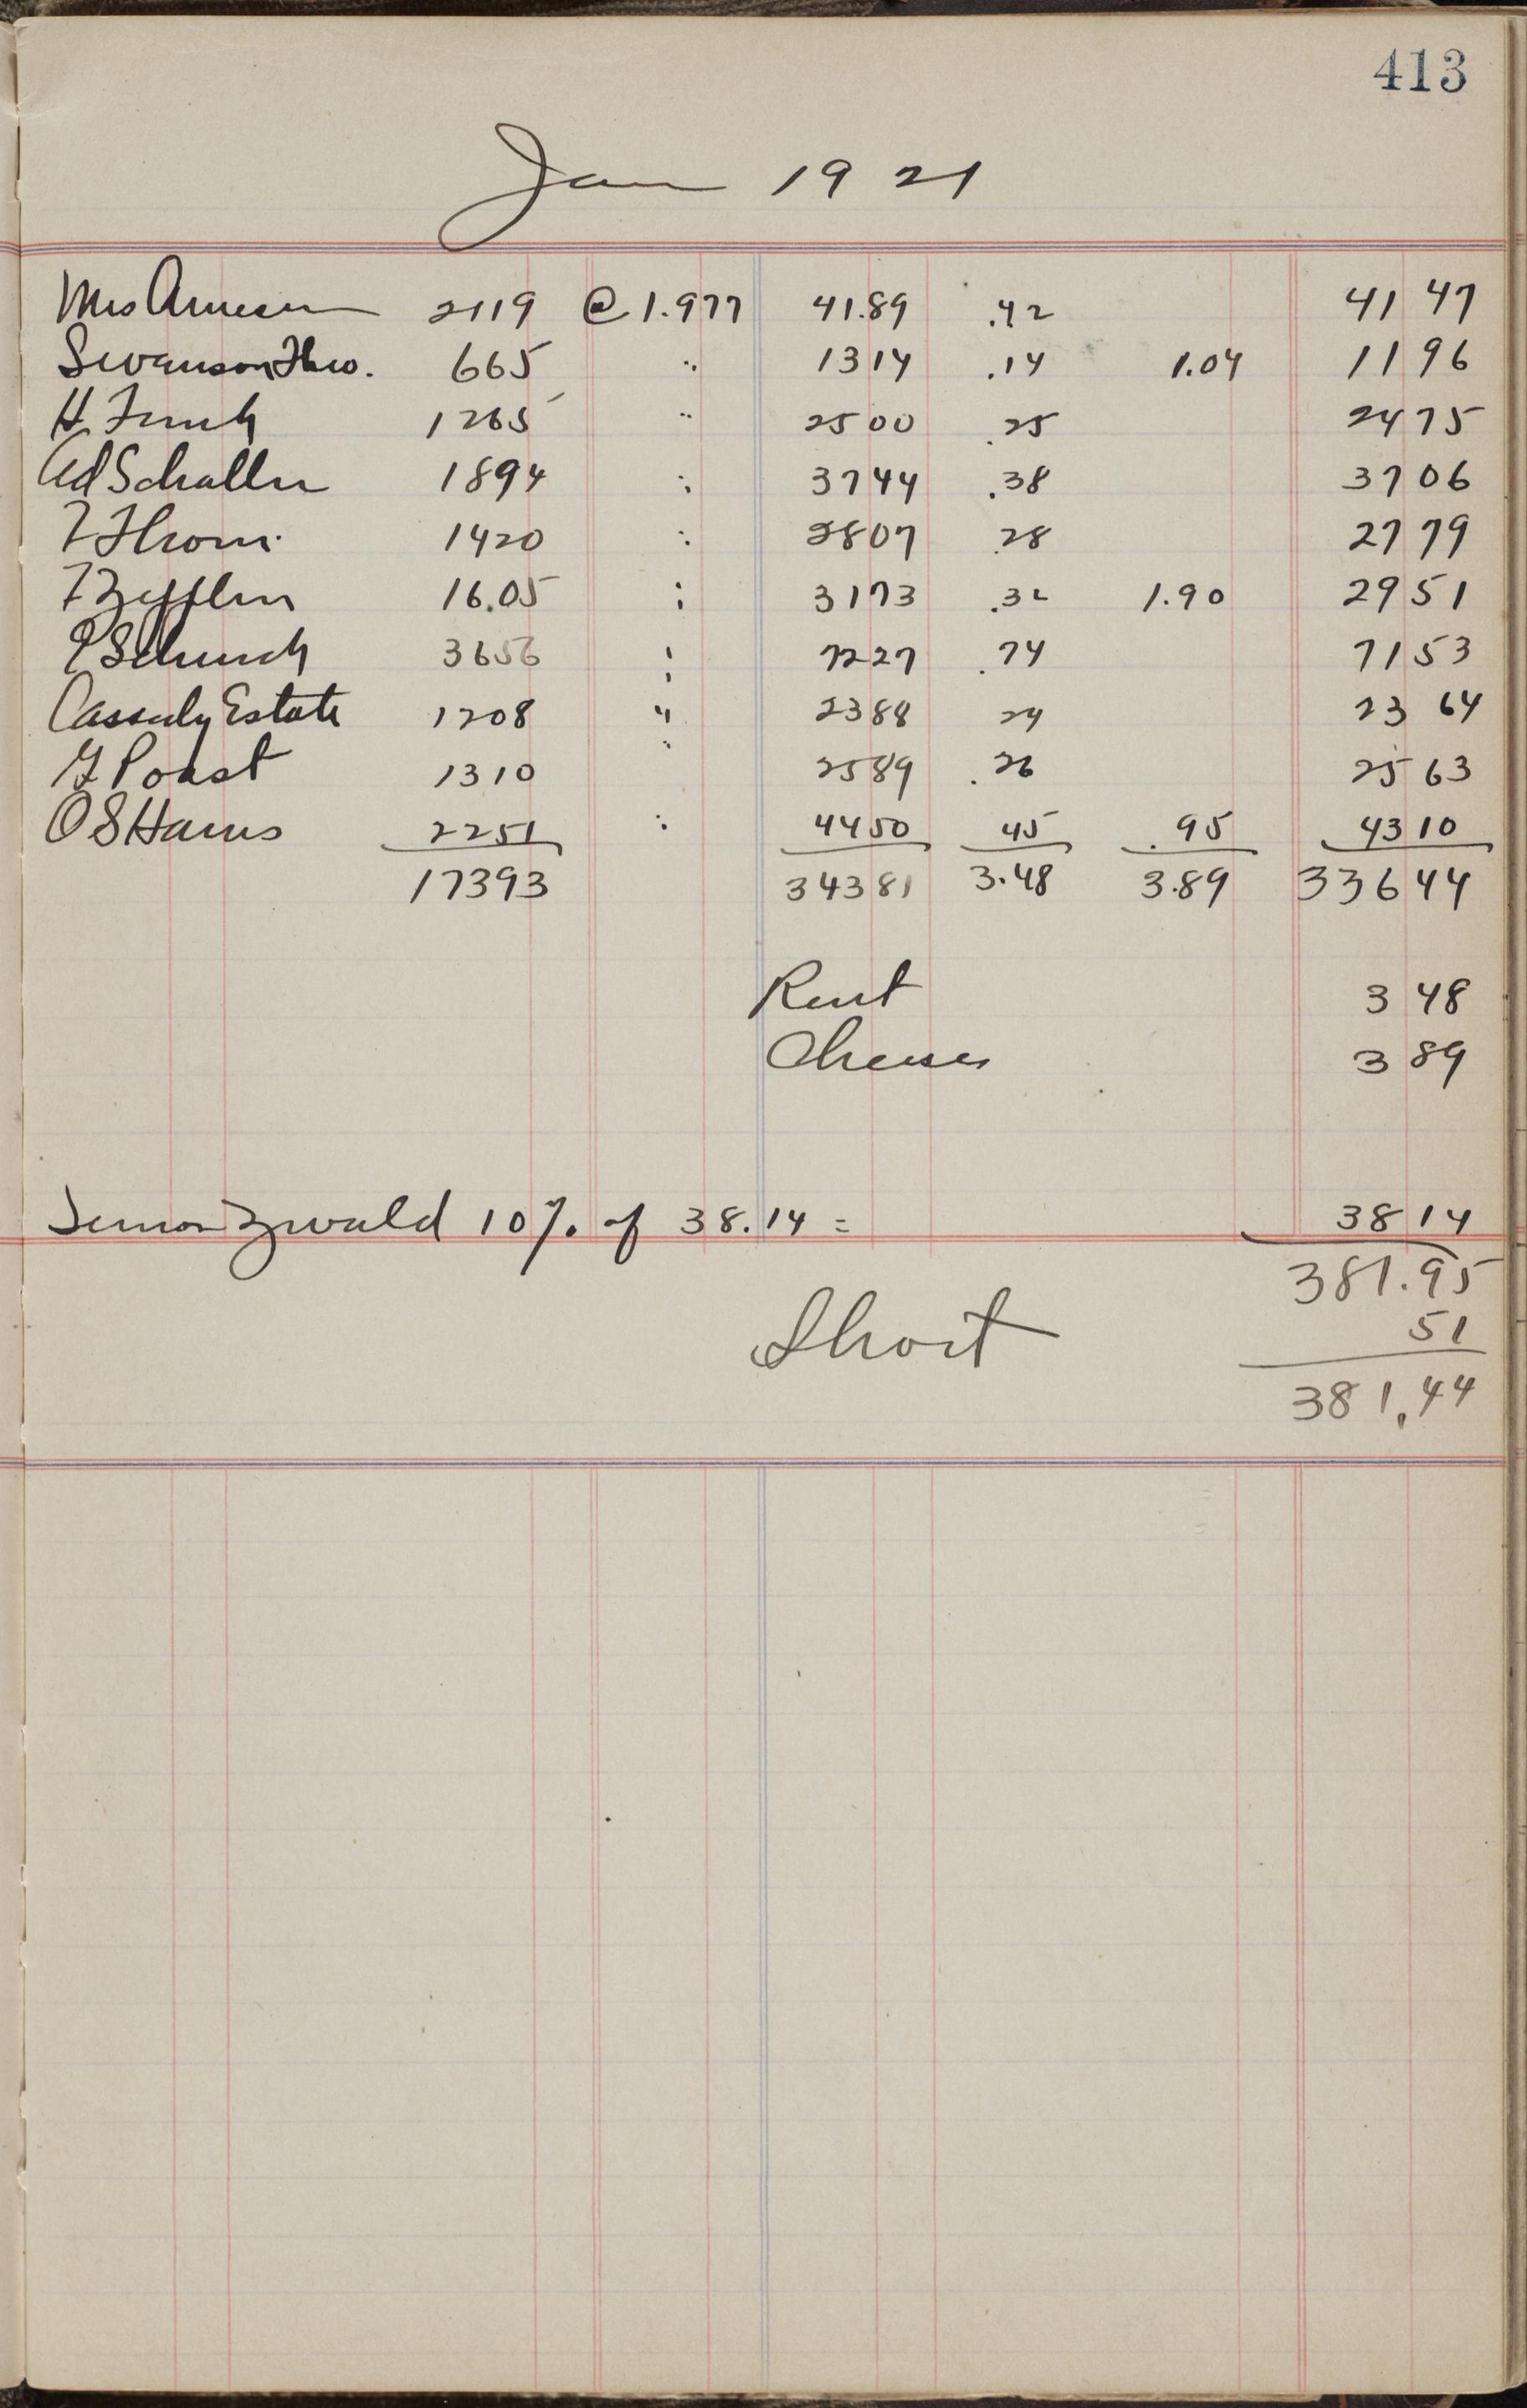 413
Jan 1921
Mrs Arneson 2119 @ 1.977 41.89 .42 41 47
Swanson Theo. 665 " 13 14 .14 1.04 11 96
H Funk 1265 " 25 00 .25 24 75
Ad Schaller 1894 " 37 44 .38 37 06
F Thom 1420 " 28 07 .28 27 79
F Zefflin 16.05 " 31 73 .32 1.90 29 51
P Schunk 3656 " 72 27 .74 71 53
Cassidy Estate 1208 " 23 88 24 23 64
G Poast 1310 " 25 89 .26 25 63
O S Harris 2251 " 44 50 45 .95 43 10
17393 343 81 3.48 3.89 336 44
Rent 3 48
Cheese 3 89
Simon Zwald 10% of 38.14 = 38 14
381.95
Short 51
381.44